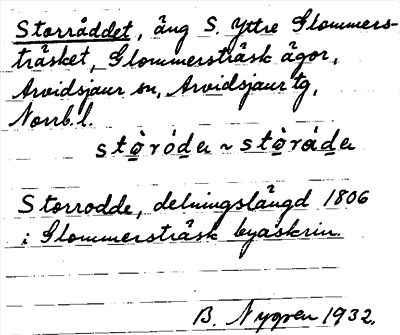 Storråddet, äng S. Yttre Glommers-
träsket, Glommersträsk ägor,
Arvidsjaur sn, Arvidsjaur tg,
Norrb.l.
stò̱róḏa ~ stò̱ráḏa
Storrodde, delningslängd 1806
i Glommersträsk byaskrin.
B. Nygren 1932.